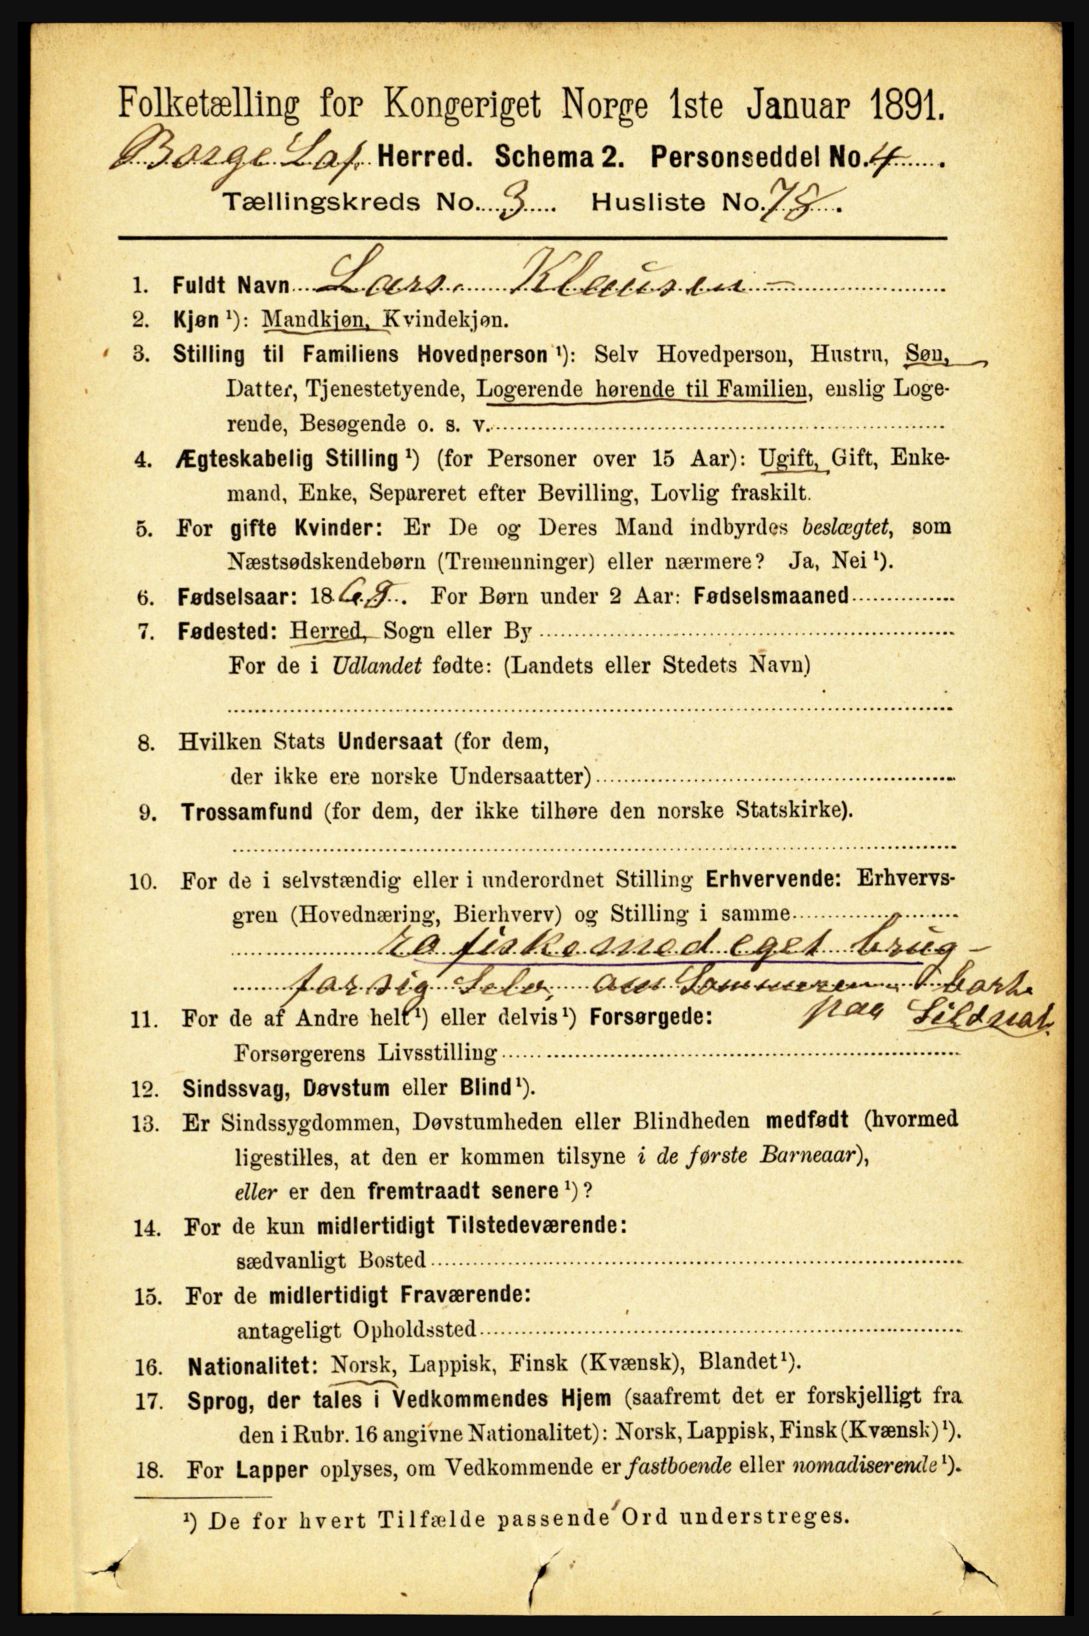 Folketælling for Kongeriget Norge 1ste Januar 1891.
Borge Lof. Herred. Schema 2. Personseddel No. 4.
Tællingskreds No. 3. Husliste No. 78.
1. Fuldt Navn Lars Klausen
2. Kjøn ¹): Mandkjøn, Kvindekjøn.
3. Stilling til Familiens Hovedperson ¹): Selv Hovedperson, Hustru, Søn,
Datter, Tjenestetyende, Logerende hørende til Familien, enslig Loge-
rende, Besøgende o. s. v.
4. Ægteskabelig Stilling ¹) (for Personer over 15 Aar): Ugift, Gift, Enke-
mand, Enke, Separeret efter Bevilling, Lovlig fraskilt.
5. For gifte Kvinder: Er De og Deres Mand indbyrdes beslægtet, som
Næstsødskendebørn (Tremenninger) eller nærmere? Ja, Nei ¹).
6. Fødselsaar: 1869. For Børn under 2 Aar: Fødselsmaaned
7. Fødested: Herred, Sogn eller By
For de i Udlandet fødte: (Landets eller Stedets Navn)
8. Hvilken Stats Undersaat (for dem,
der ikke ere norske Undersaatter)
9. Trossamfund (for dem, der ikke tilhøre den norske Statskirke).
10. For de i selvstændig eller i underordnet Stilling Erhvervende: Erhvervs-
gren (Hovednæring, Bierhverv) og Stilling i samme
ro fiske med eget brug -
for sig Selv, om Sommeren bort
paa Sildnot
11. For de af Andre helt ¹) eller delvis ¹) Forsørgede:
Forsørgerens Livsstilling
12. Sindssvag, Døvstum eller Blind ¹).
13. Er Sindssygdommen, Døvstumheden eller Blindheden medfødt (hvormed
ligestilles, at den er kommen tilsyne i de første Barneaar),
eller er den fremtraadt senere ¹)?
14. For de kun midlertidigt Tilstedeværende:
sædvanligt Bosted
15. For de midlertidigt Fraværende:
antageligt Opholdssted
16. Nationalitet: Norsk, Lappisk, Finsk (Kvænsk), Blandet ¹).
17. Sprog, der tales i Vedkommendes Hjem (saafremt det er forskjelligt fra
den i Rubr. 16 angivne Nationalitet): Norsk, Lappisk, Finsk (Kvænsk) ¹).
18. For Lapper oplyses, om Vedkommende er fastboende eller nomadiserende ¹).
¹) De for hvert Tilfælde passende Ord understreges.